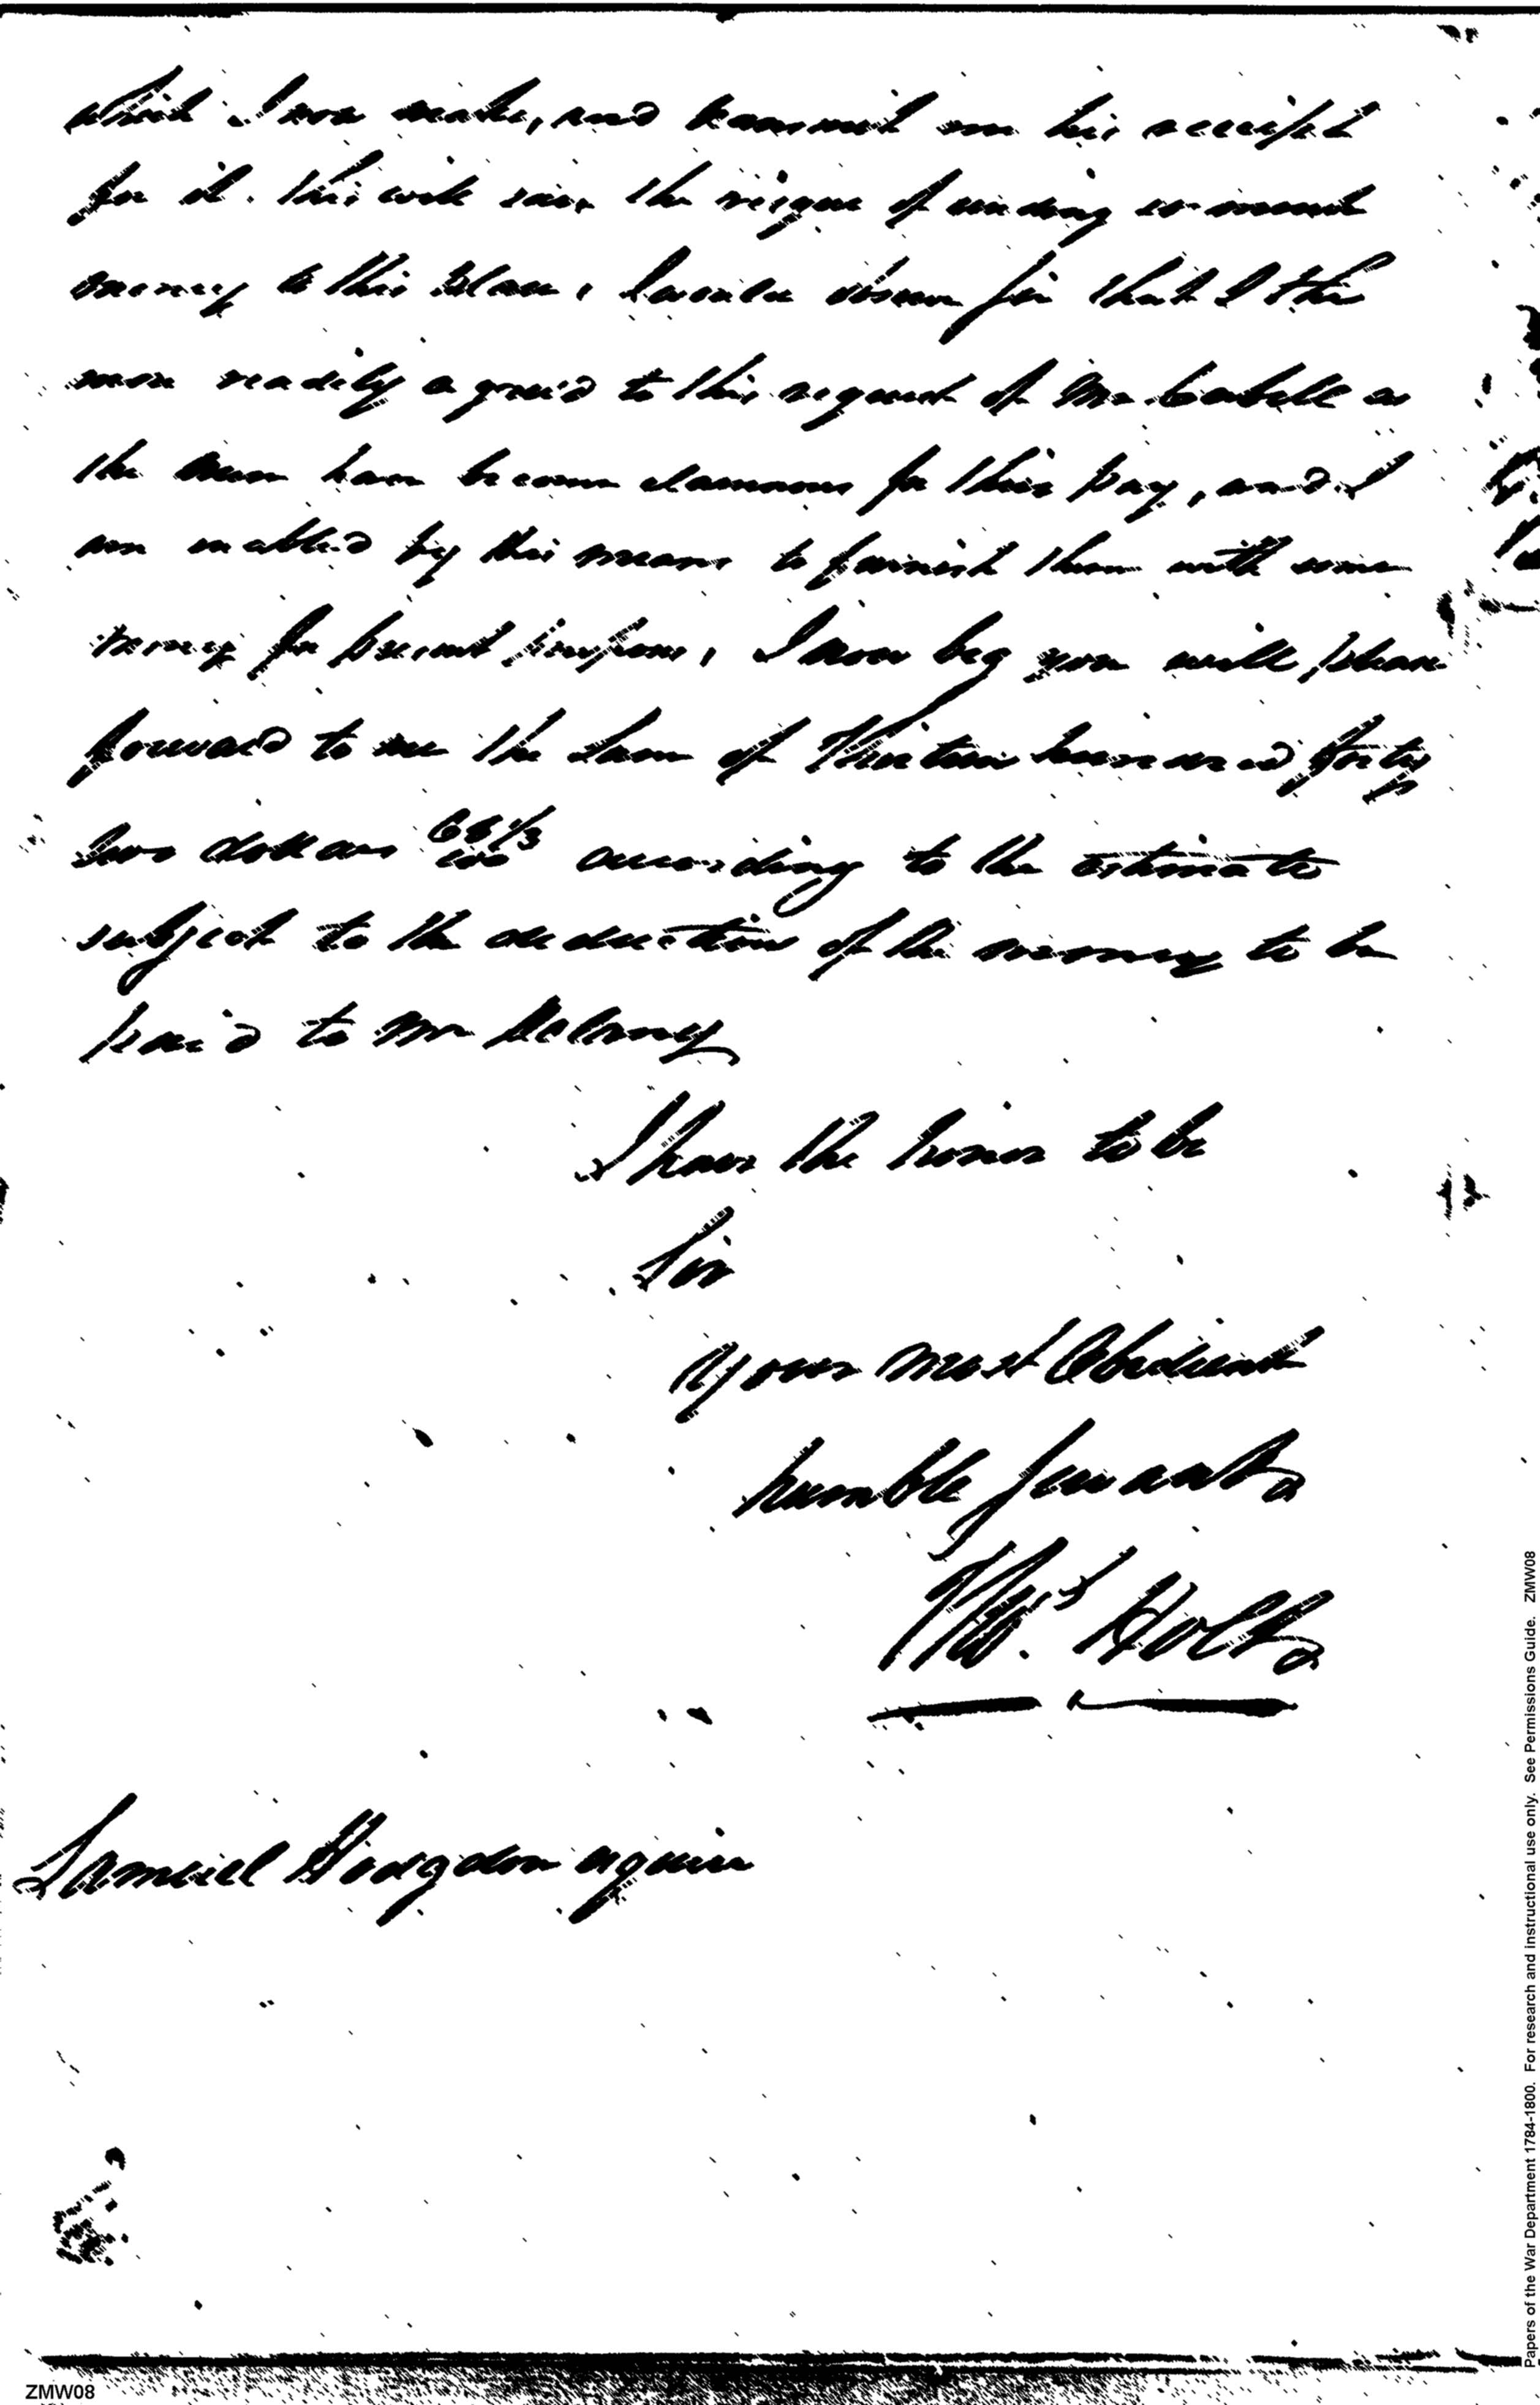 which I now make, and transmit me his receipt
for it. this will save the risque of sending so much
money to this place, I would observe sir that I the
more readily agreed to this request of Mr. Cabell as
the men have become clamorous for their pay, and I
am enabled by this means to furnish them with some
money for present purposes, I now beg you will please
forward to me the sum of thirteen hundred & forty
two dollars 66 1/3/100 according to the estimate
subject to the deduction of the money to be
paid to Mr Delany
I have the honor to be
Sir
your most Obedient
humble Servant
Holt
Samuel Hodgdon esquire
ZMW08
Papers of the War Department 1784-1800. For research and instructional use only. See Permissions Guide. ZMW08